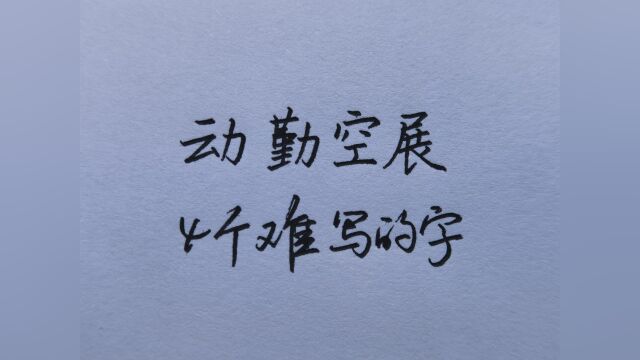 动勤空展
4个难写的字